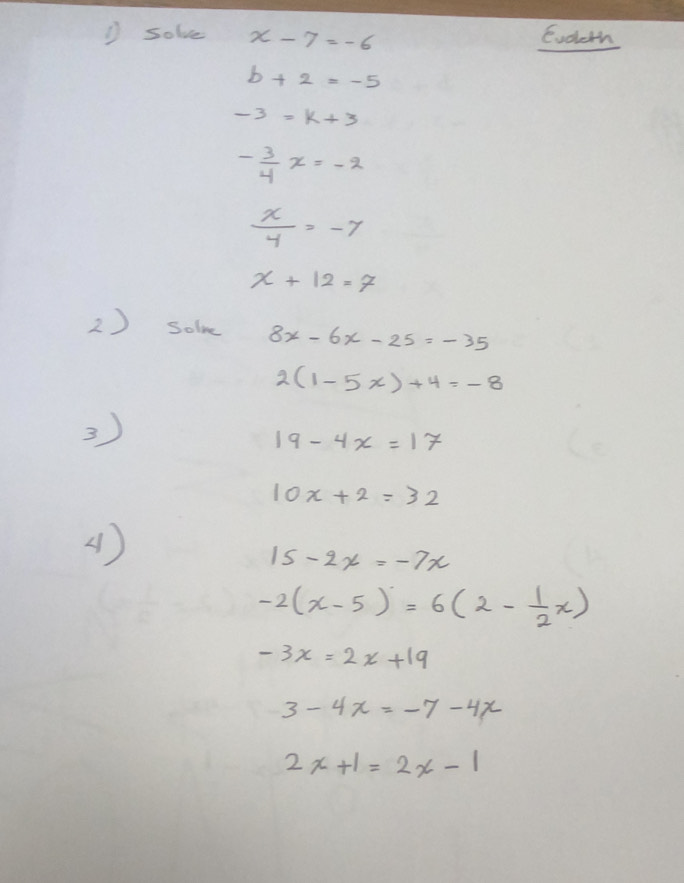 1) Solve x - 7 = -6
b + 2 = -5
-3 = k + 3
-3/4 x = -2
x/4 = -7
x + 12 = 7
2) Solve 8x - 6x - 25 = -35
2(1 - 5x) + 4 = -8
3) 19 - 4x = 17
10x + 2 = 32
4) 15 - 2x = -7x
-2(x - 5) = 6(2 - 1/2 x)
-3x = 2x + 19
3 - 4x = -7 - 4x
2x + 1 = 2x - 1